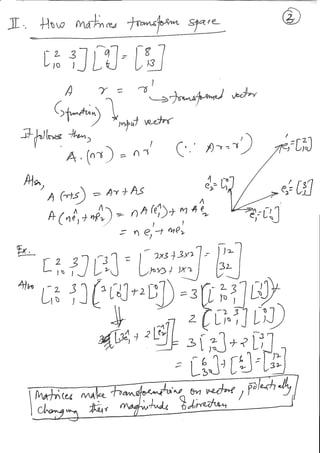 ②
II. How matrices transform space
[2 3; 10 1] [a; b] = [8; 13]
A r = r'
(function) input vector → transformed vector
It follows then,
A.(nr) = nr' (∵ Ar = r')
Also,
A(r+s) = Ar + As
A(nê₁ + mê₂) = nA(ê₁) + mAê₂
= ne₁' + me₂'
ê₂ = [0; 1] e₁' = [2; 10] e₂' = [3; 1] ê₁ = [1; 0]
Ex.
[2 3; 10 1] [3; 2] = [2x3 + 3x2; 10x3 + 1x2] = [12; 32]
Also
[2 3; 10 1] (3[1; 0] + 2[0; 1]) = 3([2 3; 10 1] [1; 0]) +
2([2 3; 10 1] [0; 1])
[3ê₁ + 2ê₂] = 3[2; 10] + 2[3; 1]
= [6; 30] + [6; 2] = [12; 32]
Matrices make transformations on vectors, potentially
changing their magnitude & direction